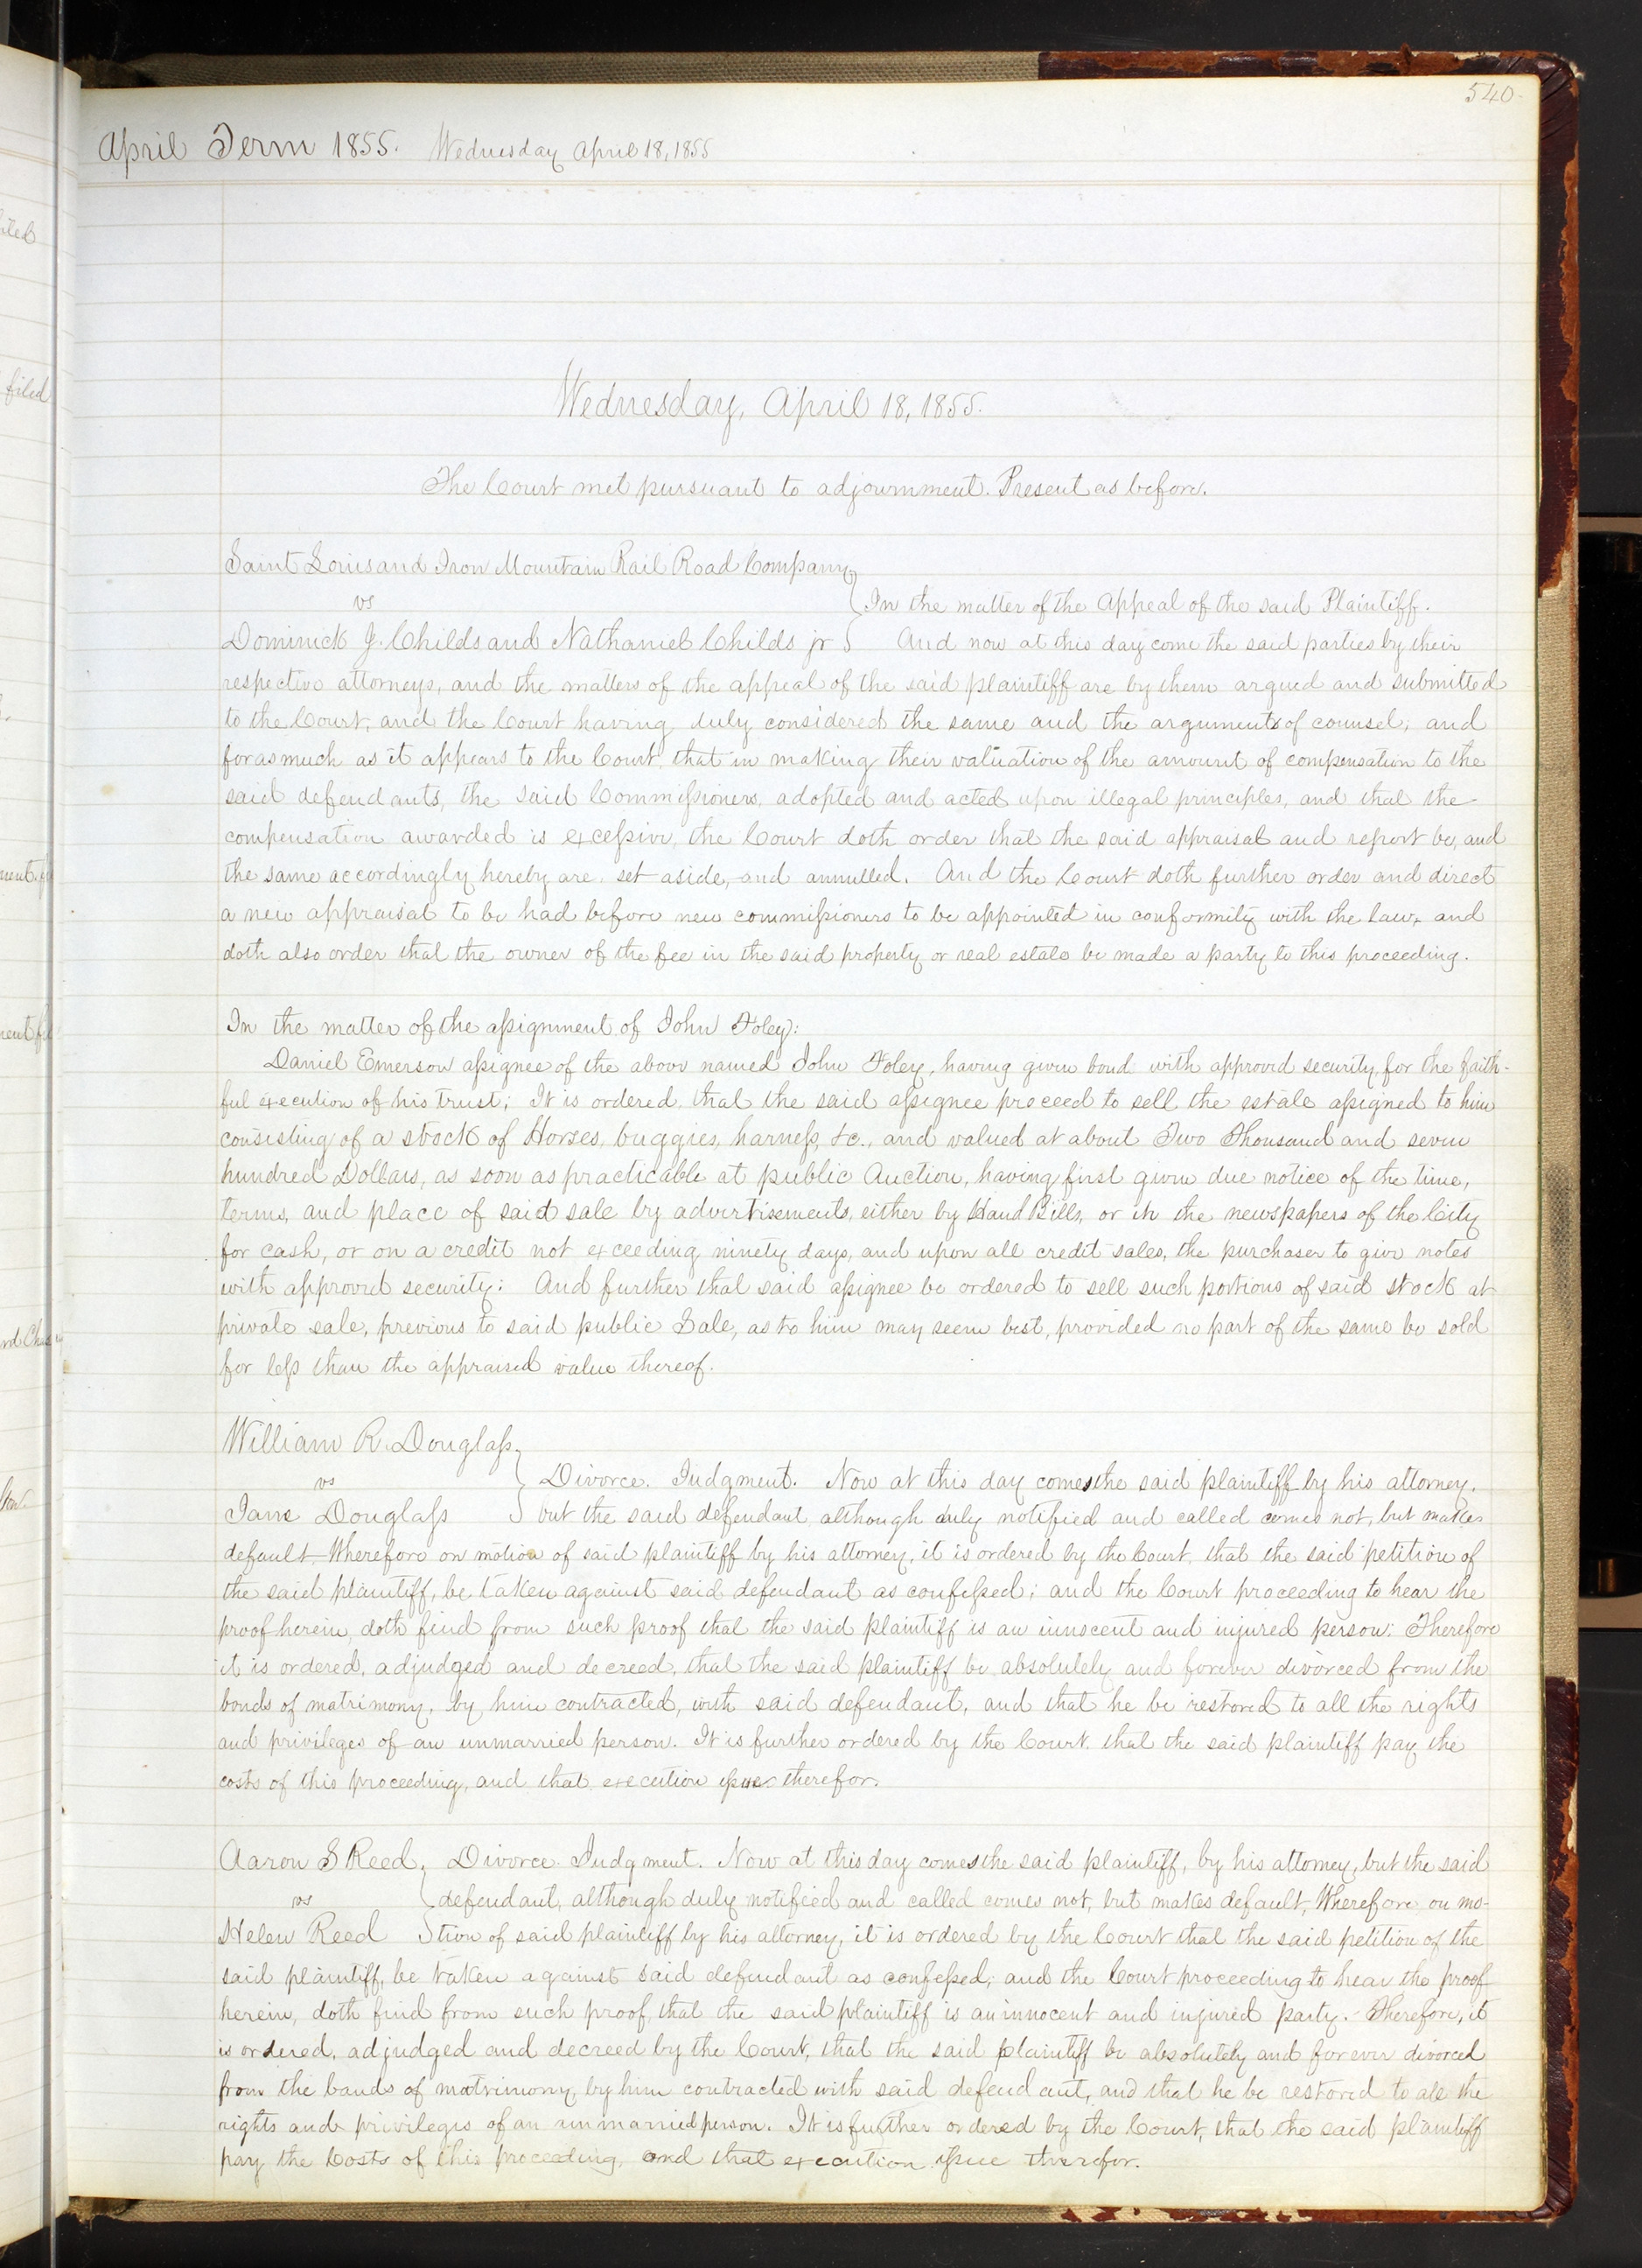 540
April Term 1855. Wednesday April 18, 1855
Wednesday, April 18, 1855.
The Court met pursuant to adjournment. Present as before.
Saint Louis and Iron Mountain Rail Road Company
vs
In the matter of the Appeal of the said Plaintiff.
Dominick J. Childs and Nathaniel Childs jr And now at this day come the said parties by their
respective attorneys, and the matters of the appeal of the said plaintiff are by them argued and submitted
to the Court, and the Court having duly considered the same and the arguments of counsel; and
forasmuch as it appears to the Court, that in making their valuation of the amount of compensation to the
said defendants, the said Commissioners, adopted and acted upon illegal principles, and that the
compensation awarded is excessive, the Court doth order that the said appraisal and report be, and
the same accordingly hereby are, set aside, and annulled. And the Court doth further order and direct
a new appraisal to be had before new commissioners to be appointed in conformity with the law, and
doth also order that the owner of the fee in the said property or real estate be made a party to this proceeding.
In the matter of the assignment of John Foley:
Daniel Emerson assignee of the above named John Foley, having given bond with approved security, for the faith-
ful execution of his trust; It is ordered, that the said assignee proceed to sell the estate assigned to him
consisting of a stock of Horses, buggies, harness, &c., and valued at about Two Thousand and seven
hundred Dollars, as soon as practicable at public Auction, having first given due notice of the time,
terms, and place of said sale by advertisements, either by Hand Bills, or in the newspapers of the City
for cash, or on a credit not exceeding ninety days, and upon all credit sales, the purchaser to give notes
with approved security: And further that said assignee be ordered to sell such portions of said stock at
private sale, previous to said public Sale, as to him may seem best, provided no part of the same be sold
for less than the appraised value thereof.
William R. Douglass
vs
Divorce. Judgment. Now at this day comes the said plaintiff by his attorney,
Jane Douglass but the said defendant although duly notified and called comes not, but makes
default. Wherefore on motion of said plaintiff by his attorney, it is ordered by the Court, that the said petition of
the said plaintiff, be taken against said defendant as confessed; and the Court proceeding to hear the
proof herein, doth find from such proof that the said plaintiff is an innocent and injured person: Therefore
it is ordered, adjudged and decreed, that the said plaintiff be absolutely and forever divorced from the
bonds of matrimony, by him contracted, with said defendant, and that he be restored to all the rights
and privileges of an unmarried person. It is further ordered by the Court, that the said plaintiff pay the
costs of this proceeding, and that execution issue therefor.
Aaron S Reed, Divorce Judgment. Now at this day comes the said plaintiff, by his attorney, but the said
vs defendant, although duly notified and called comes not, but makes default, Wherefore, on mo-
Helen Reed tion of said plaintiff by his attorney, it is ordered by the Court that the said petition of the
said plaintiff, be taken against said defendant as confessed; and the Court proceeding to hear the proof
herein, doth find from such proof, that the said plaintiff is an innocent and injured party. Therefore, it
is ordered, adjudged and decreed by the Court, that the said plaintiff be absolutely and forever divorced
from the bands of matrimony, by him contracted with said defendant, and that he be restored to all the
rights and privileges of an unmarried person. It is further ordered by the Court, that the said plaintiff
pay the Costs of this proceeding, and that execution issue therefor.